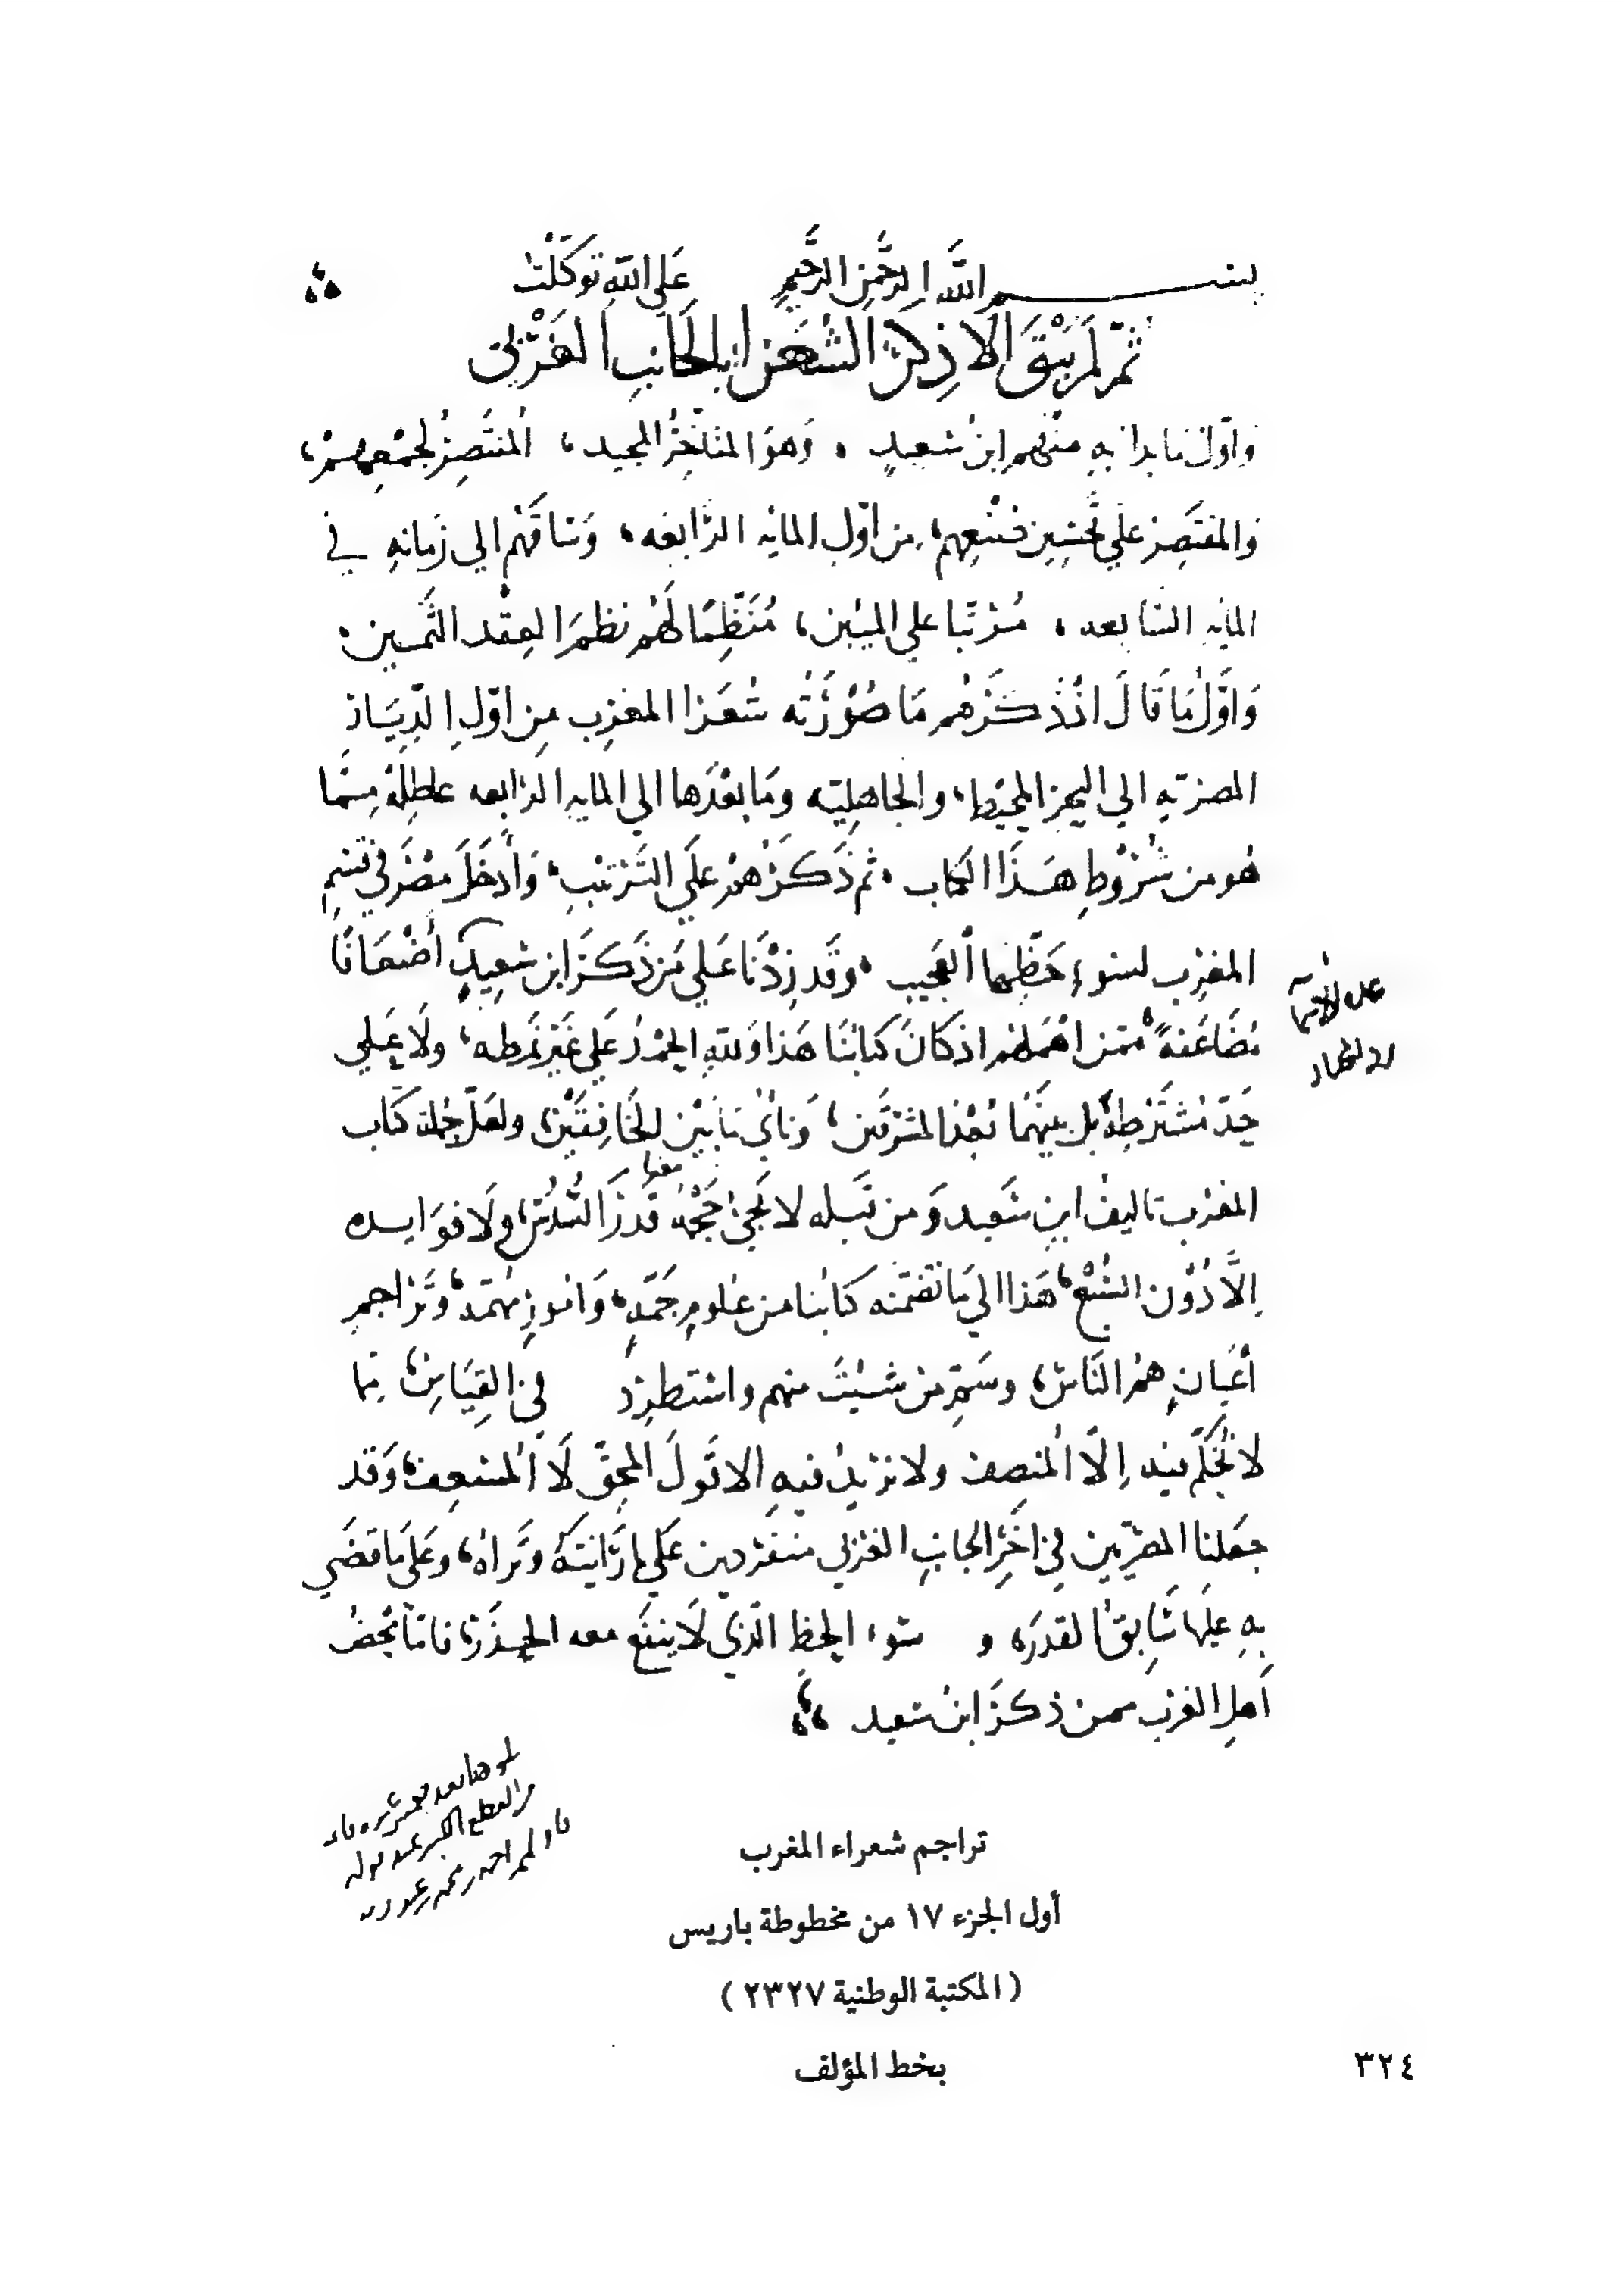 بسم الله الرحمن الرحيم على الله توكلت
ثم لم يبق الا ذكر الشعرا بالجانب الغربي
واول ما بدا به منهم ابن سعيد ، وهو المتاخر المجيد ، المنتصر لجمعهم ،
والمقتصر على تحسين صنعهم ، من اول المايه الرابعه ، وساقهم الي زمانه في
المايه السابعه ، مرتبا على الميين ، منظما لهم نظم العقد الثمين .
وَاَوّل ما قال اذ ذكرهم ما صُوْرَتُه شعرا المغرب من اوّل الدّيار
المصرّيه الي البحر المحيط ، والجاهليّه وما بعدها الي المايه الرابعه عاطلة مما
هو من شُرُوْط هذا الكتاب ، ثم ذكرهم على الترتيب ، وأدخل مصر في قسم
المغرب لسوء حظّها العجيب ، وقد زدنا على من ذكر ابن سعيد أضعافًا
مُضَاعَفةً ممّن اهملهم اذ كان كتابنا هذا ولله الحمد على غير نمطه ، ولا على
حدّ مشترطه بل بينهما بُعْد المشرقين ، ونائ ما بين الخافقين ، ولعل جملة كتاب
المغرب تاليف ابن سعيد ومن قبله لا يجئ حجمه قدر السُّدُس ، ولا فوايده
اِلَّا دُوْن السُّبْع ، هذا الي ما تضمّنه كتابنا من علومٍ جمّهٍ ، وامورٍ مهمّه ، وتراجم
أعيانٍ هم الناس ، وسَمِّ من شيْتَ منهم واستطرد في القياس ، مما
لا نُحَكّم فيه اِلّا المنصف ولا نريد فيه الا قول المحقّ لا المتعسف ، وقد
جعلنا المصريّين في آخر الجانب الغربي منفردين على ما رَاَيْتَهُ وتراهُ ، وعلى ما قضي
به عليها سابق القدر ، و سوء الحظ الّذي لا ينفع معه الحذر ، فامّا محض
اهل الغرب ممن ذكر ابن سعيد
تراجم شعراء المغرب
أول الجزء ١٧ من مخطوطة باريس
( المكتبة الوطنية ٢٣٢٧ )
بخط المؤلف
٣٢٤